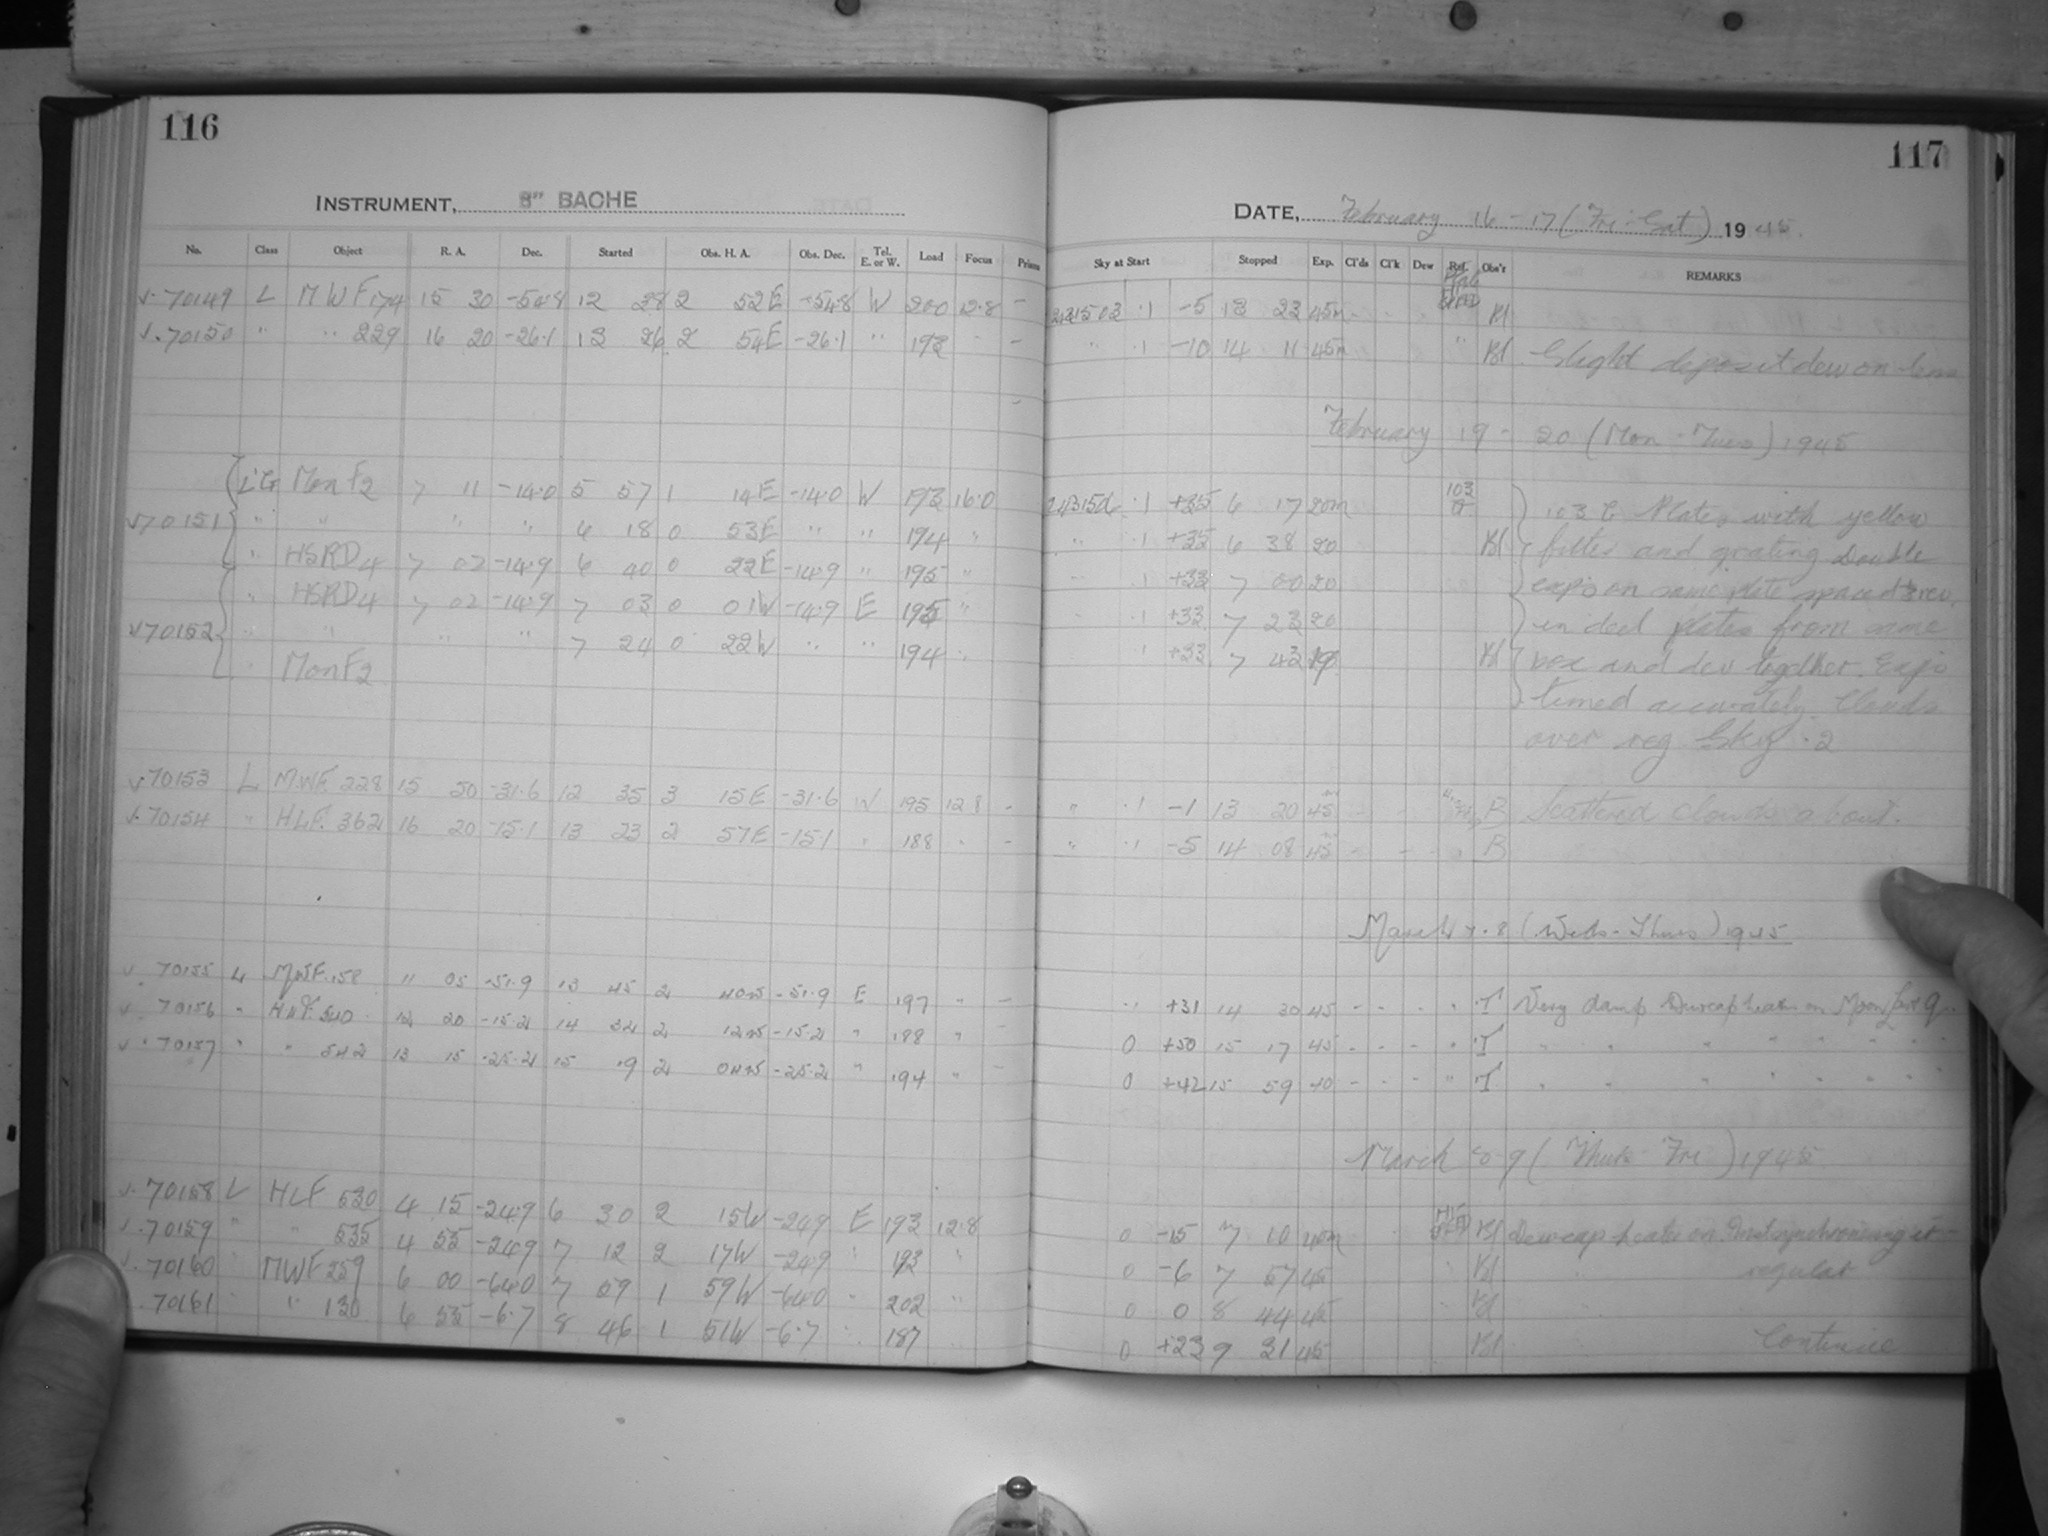 116
INSTRUMENT, 8" BACHE
No. Class Object R. A. Dec. Started Obs. H. A. Obs. Dec. Tel. E. or W. Load Focus Prism
70149 L MWF 174 15 30 -54.8 12 38 2 52E -54.8 W 200 12.8 -
70150 " " 229 16 20 -26.1 13 26 2 54E -26.1 " 193 -
L'G Mon F2 7 11 -14.0 5 57 1 14E -14.0 W 193 16.0
70151 " " " " 6 18 0 53E " " 194 "
" HSRD4 7 02 -14.9 6 40 0 22E -14.9 " 195 "
" HSRD4 7 02 -14.9 7 03 0 01W -14.9 E 195 "
70152 " " " " 7 24 0 22W " " 194 "
Mon F2
70153 L MWF 228 15 50 -31.6 12 35 3 15E -31.6 W 195 12 8 -
70154 " HLF. 362 16 20 -15.1 13 23 2 57E -15.1 " 188 " -
70155 L MWF. 158 11 05 -51.9 13 45 2 40W -51.9 E 197 " -
70156 " HLF 540 12 20 -15.2 14 32 2 12W -15.2 " 188 "
70157 " " 542 13 15 -25.2 15 19 2 04W -25.2 " 194 " -
70158 L HLF 530 4 15 -24.9 6 30 2 15W -24.9 E 193 12.8
70159 " " 535 4 55 -24.9 7 12 2 17W -24.9 " 193 "
70160 " MWF 259 6 00 -64.0 7 59 1 59W -64.0 " 202 "
70161 " " 130 6 55 -6.7 8 46 1 51W -6.7 " 187
117
DATE, February 16-17 (Fri-Sat) 1945.
Sky at Start Stopped Exp. Cl'ds Cl'k Dew Ref. Obs'r REMARKS
2431503 .1 -5 13 23 45m Bl
" .1 -10 14 11 45m " Bl Slight deposit dew on lens
February 19 - 20 (Mon - Tues) 1945
.1 +35 6 17 20m 103 G 103 G Plates with yellow
" .1 +35 6 38 20 Bl filter and grating Double
.1 +33 7 00 20 expo on same plate spaced
.1 +33 7 23 20 in decl plates from same
.1 +33 7 43 19 Bl box and dev together. Expo
timed accurately. Clouds
over reg Sky .2
" .1 -1 13 20 45 B Scattered clouds about.
" .1 -5 14 08 45 B
March 7-8 (Weds - Thurs) 1945
.1 +31 14 30 45 - - - " T Very damp Dewcap heater on Moon last q.
0 +50 15 17 45 - - - " T " " " " " "
0 +42 15 59 40 - - - " T " " " " " "
March 8-9 (Thurs Fri) 1945
0 -15 7 10 40m Bl Dewcap heater on. Inst synchronising ir-
0 -6 7 57 45 " Bl regular
0 0 8 44 45 " Bl
0 +23 9 31 45 Bl Continued